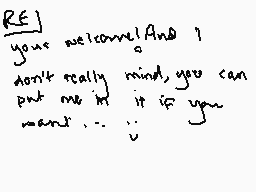 RE]
your welcome! And I
don't really mind, you can
put me in it if you
want...